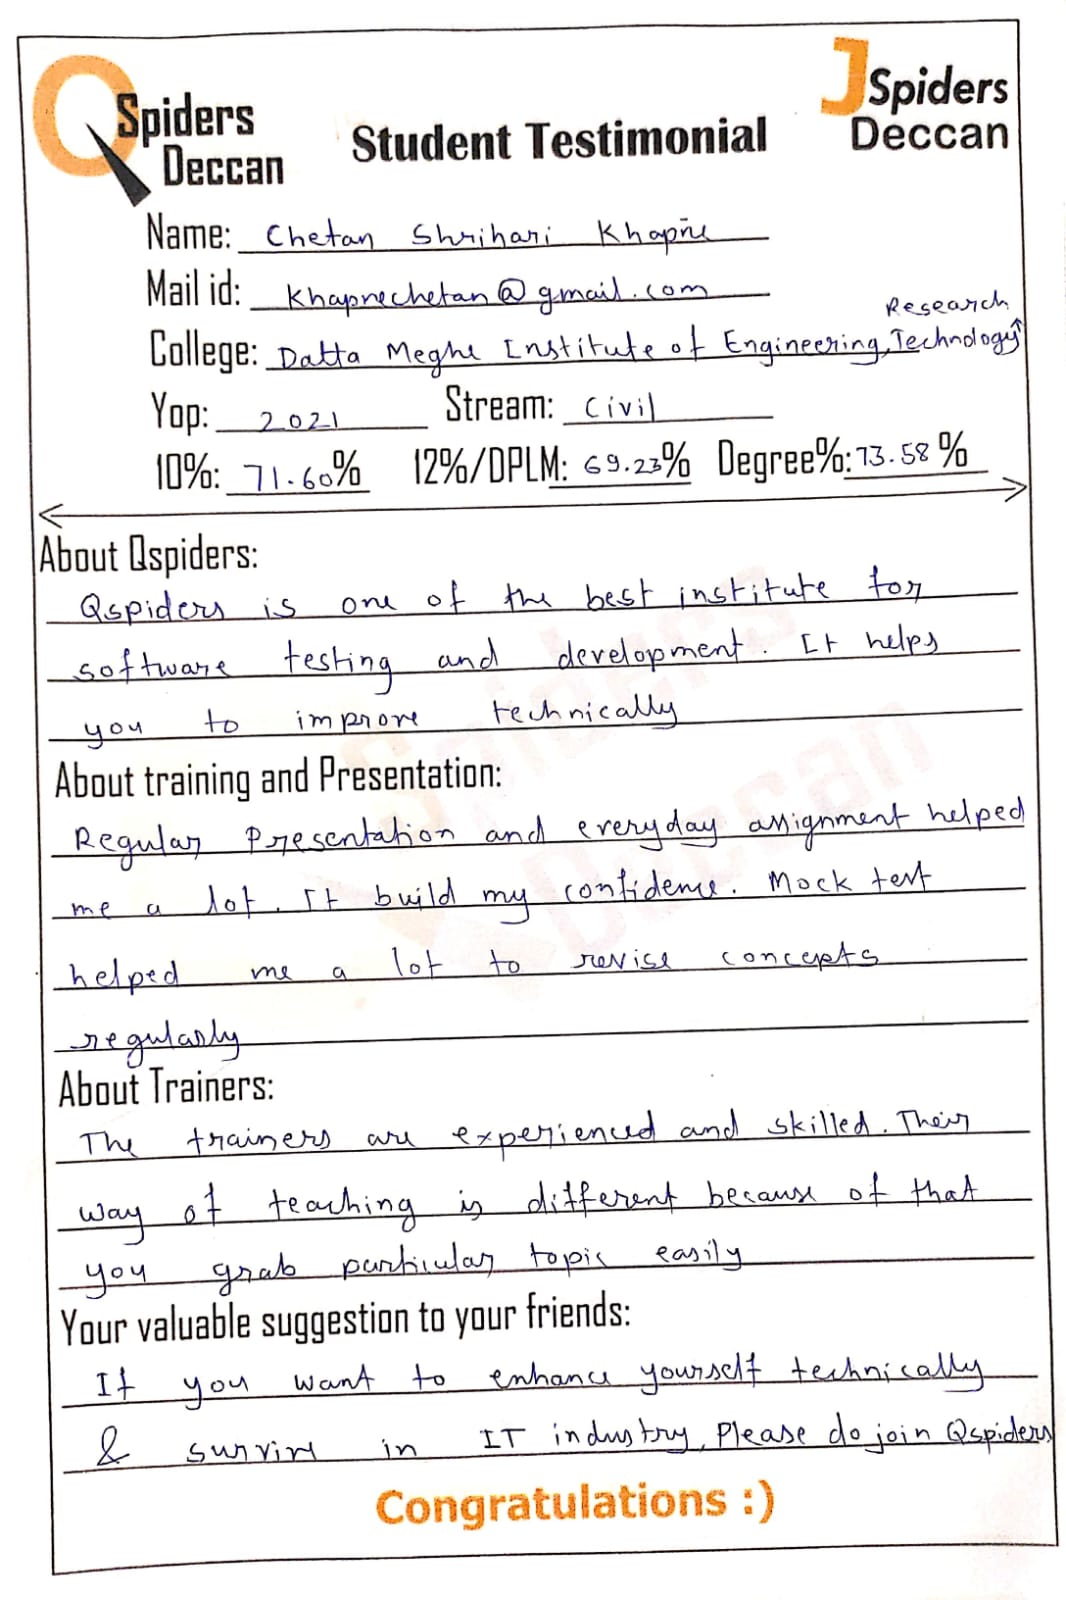 QSpiders
Deccan
JSpiders
Deccan
Student Testimonial
Name: Chetan Shrihari Khapre
Mail id: Khapnechetan@gmail.com
Research
College: Datta Meghe Institute of Engineering, Technology↑
Yop: 2021 Stream: Civil
10%: 71.60% 12%/DPLM: 69.23% Degree%: 73.58 %
About Qspiders:
Qspiders is one of the best institute for
software testing and development. It helps
you to improve technically
About training and Presentation:
Regular Presentation and everyday assignment helped
me a lot. It build my confidence. Mock test
helped me a lot to revise concepts
regularly
About Trainers:
The trainers are experienced and skilled. Their
way of teaching is different because of that
you grab particular topic easily
Your valuable suggestion to your friends:
If you want to enhance yourself technically
& survive in IT industry, Please do join Qspiders
Congratulations :)
Spiders
Deccan